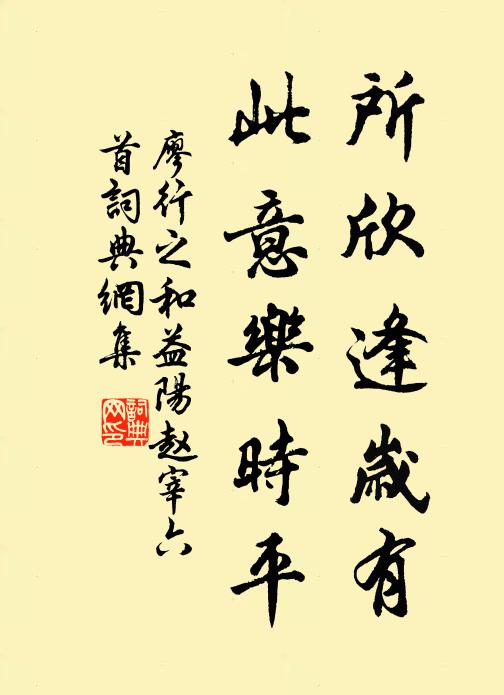 所欣逢歲有
此意樂時平
廖行之和益陽赵宰六
首詞典網集
詞典
网印